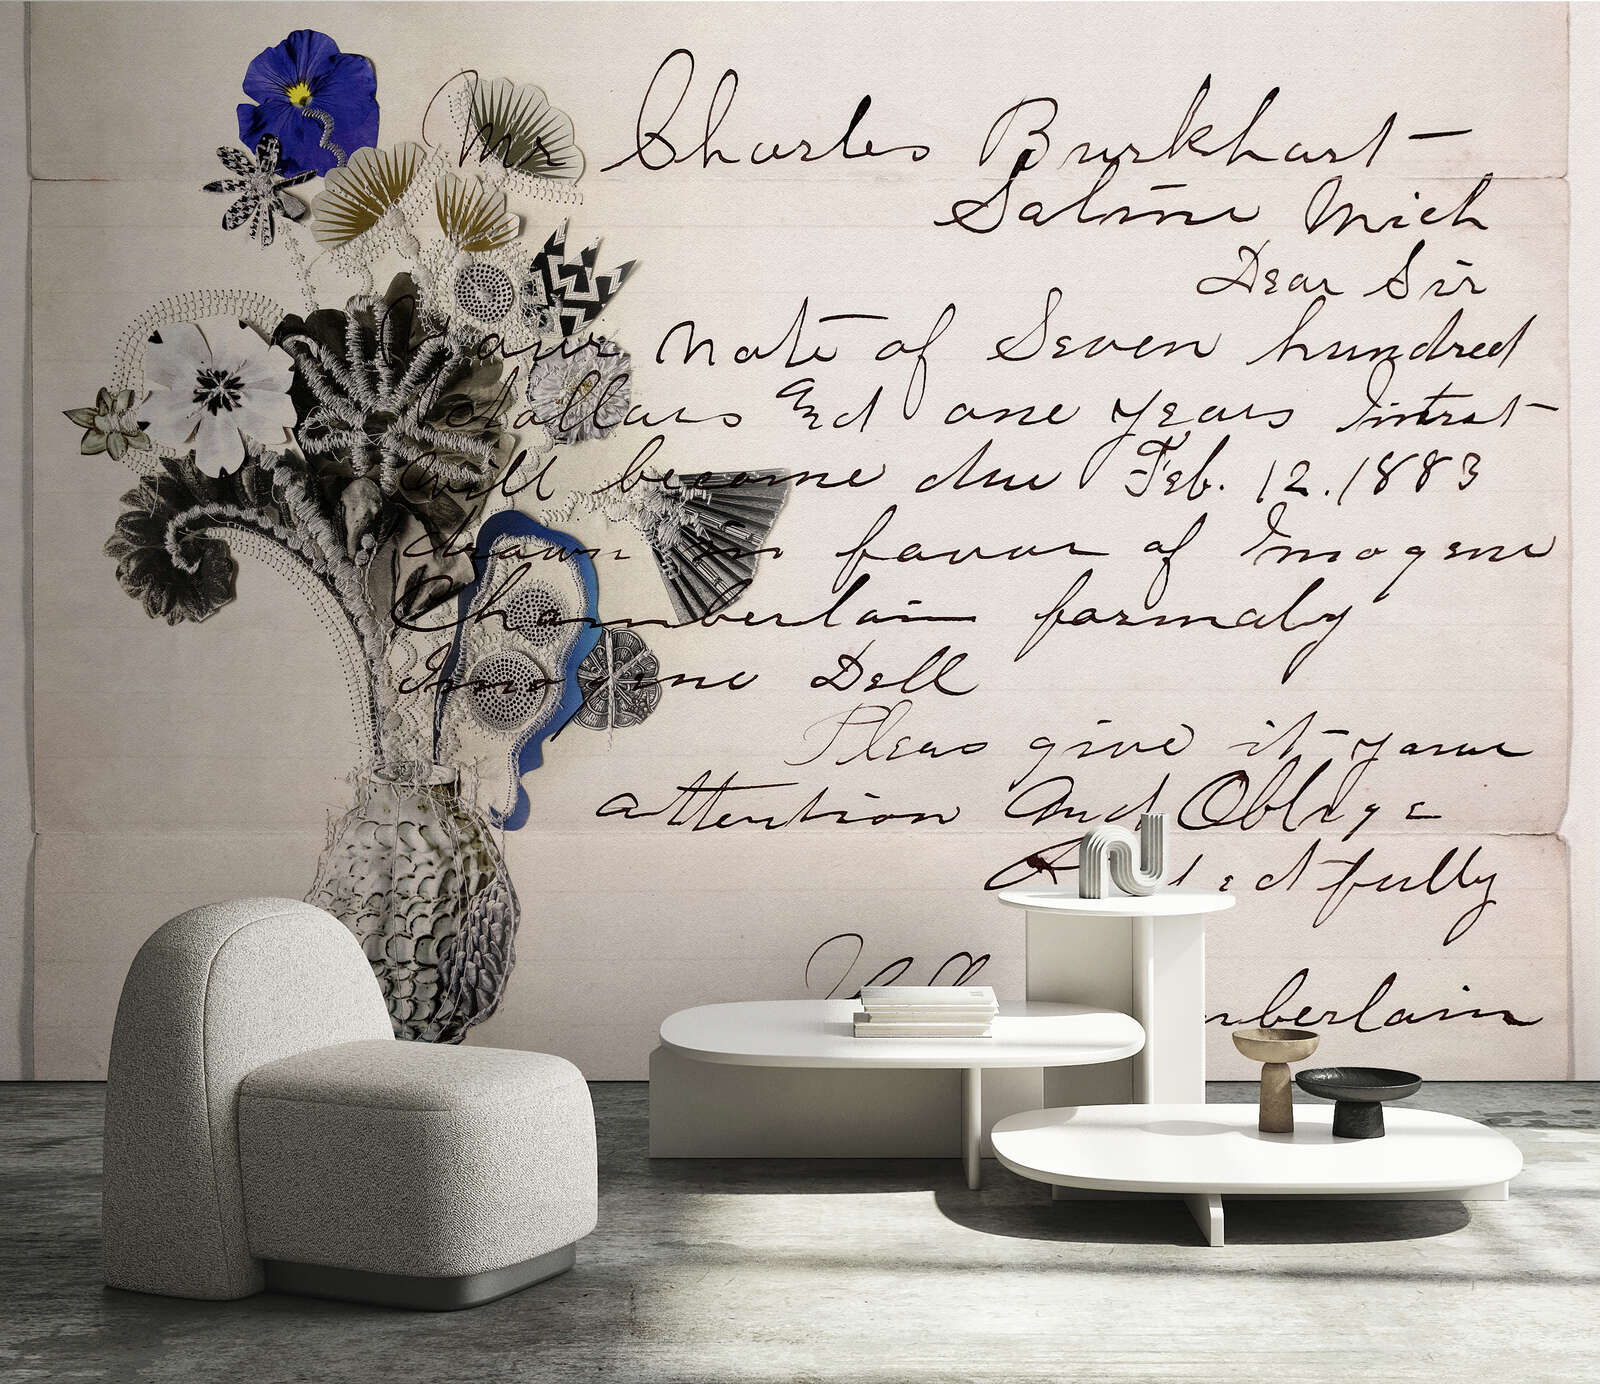 Mr Charles Burkhart
Saline Mich
Dear Sir
Your Note of Seven hundred
dollars and one years Intrst
will become due Feb. 12. 1883
drawn in favour of Imogene
Chamberlain formaly
Imogene Dell
Pleas give it your
attention And Oblige
fully
mberlain